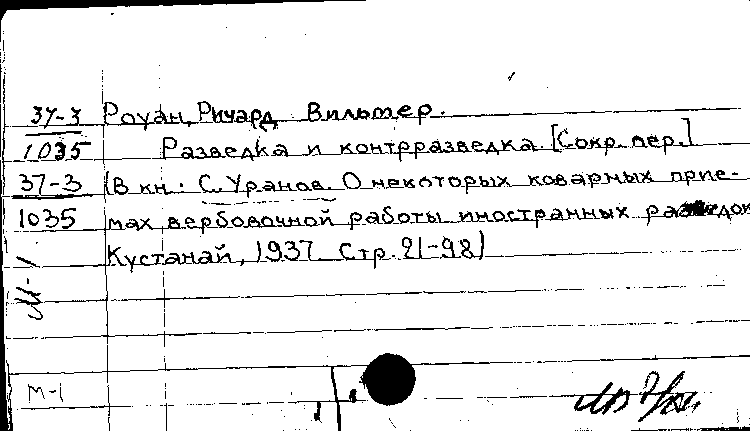 37-3 Роуан, Ричард Вильмер.
1035 Разведка и контрразведка. [Сокр. пер.]
37-3 (В кн.: С. Уранов. О некоторых коварных прие-
1035 мах вербовочной работы иностранных разведок
Кустанай, 1937 Стр. 21-98)
М-1
М-1